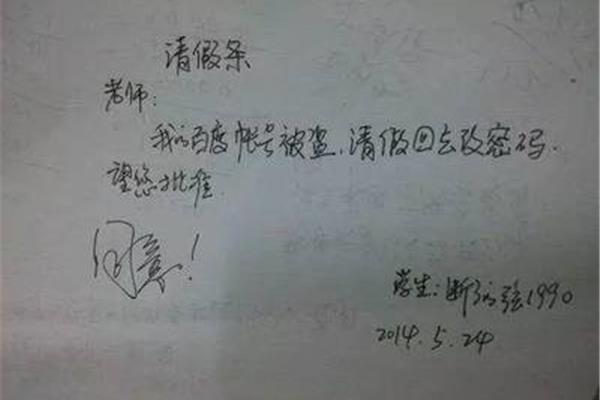 请假条
老师:
我的百度帐号被盗,请假回去改密码.
望您批准.
同意!
学生:断的弦1990
2014.5.24